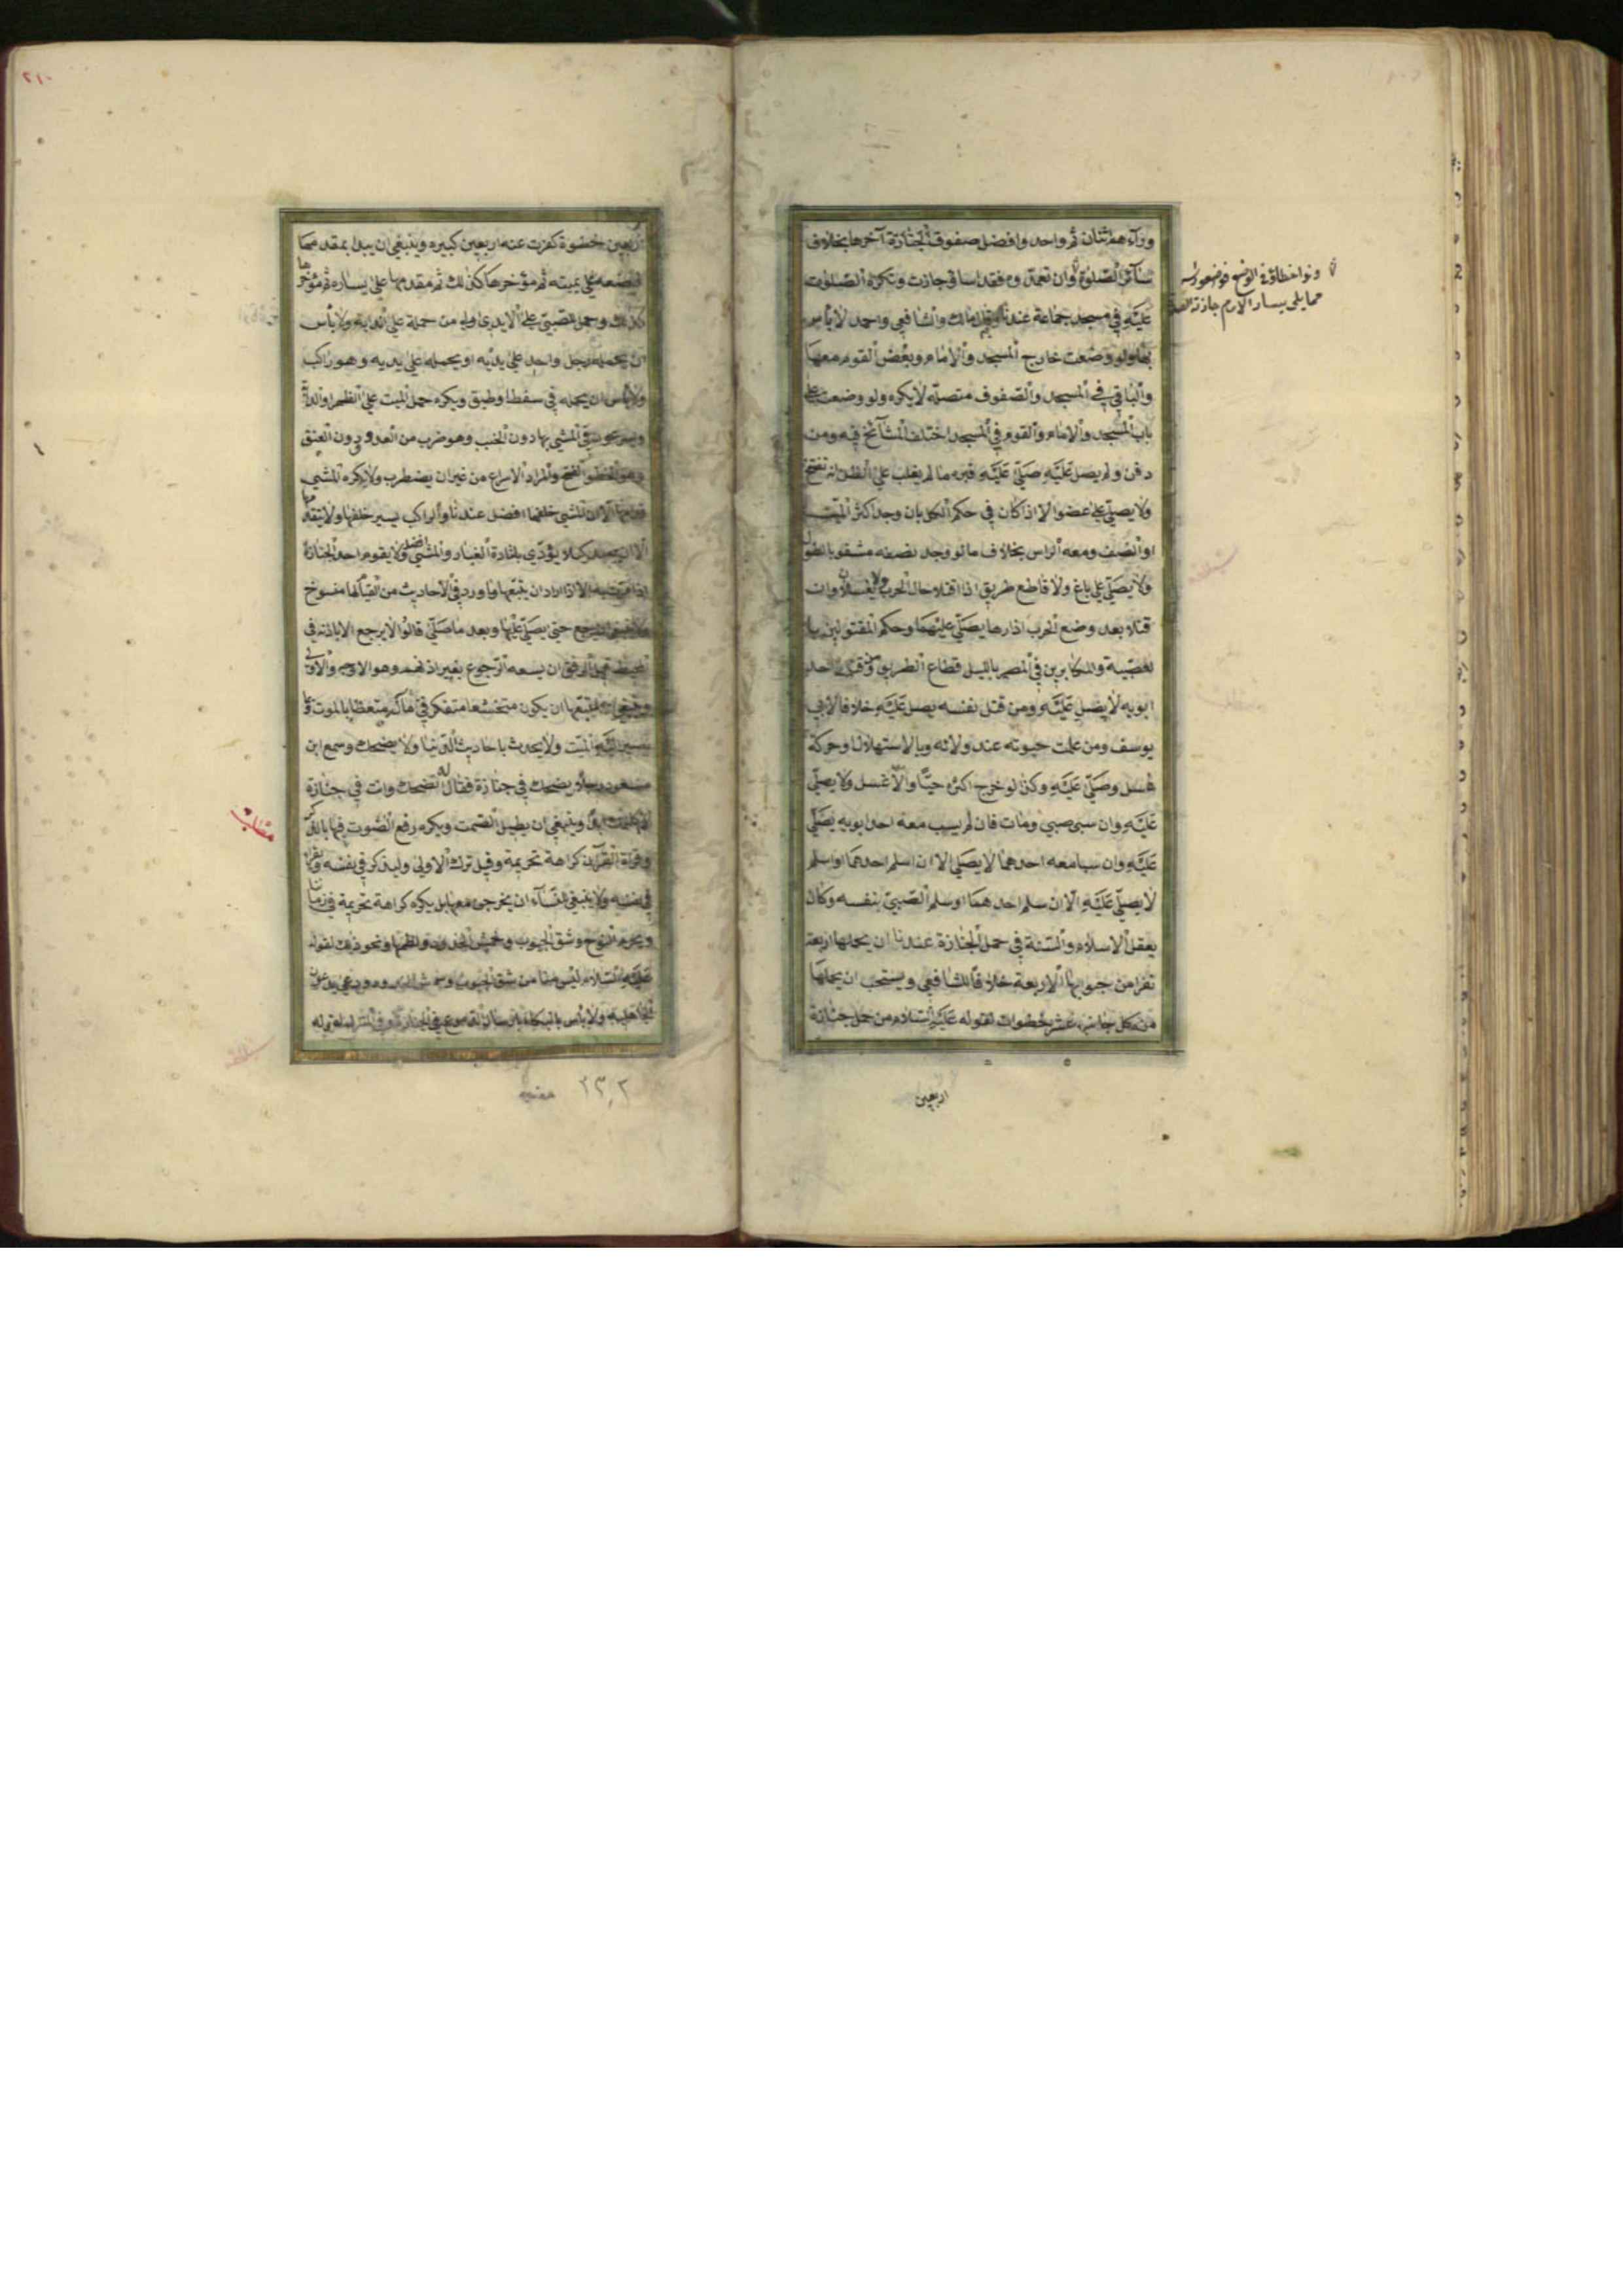 ورآءهم اثنان ثم واحد وافضل صفوف الجنازة آخرها بخلاف
سآئر الصلوة وان تعمدوه فقد اساؤا جازت وتكره الصلوة
عليه في مسجد جماعة عندنا وبه قال مالك والشافعي واحمد لا بأس
بها ولو وضعت خارج المسجد والامام وبعض القوم معها
والباقي في المسجد والصفوف متصلة لا يكره ولو وضعت على
باب المسجد والامام والقوم في المسجد اختلف المشآئخ فيه ومن
دفن ولم يصل عليه صلي عليه في قبره ما لم يغلب على الظن انه تفسخ
ولا يصلي على عضو الا اذا كان في حكم الكل بان وجد اكثر الميت
او النصف ومعه الراس بخلاف ما لو وجد نصفه مشقوقا بالطول
ولا يصلي على باغ ولا قاطع طريق اذا قتلا حال الحرب ولا يغسلان وان
قتلا بعد وضع الحرب اوزارها يصلي عليهما وحكم المقتولين با
لعصبية والمكابرين في المصر بالليل قطاع الطريق ومن قتل احد
ابويه لا يصلي عليه ومن قتل نفسه يصلى عليه خلافا لابي
يوسف ومن علمت حيوته عند ولادته وبالاستهلال او حركة
غسل وصلي عليه وكذا لو خرج اكثره حيا والا غسل ولا يصلي
عليه وان سبي صبي ومات فان لم يسب معه احد ابويه يصلي
عليه وان سبا معه احدهما لا يصلى الا ان اسلم احدهما او اسلم
لا يصلي عليه الا ان سلم احدهما او سلم الصبي بنفسه وكان
يعقل الاسلام والسنة في حمل الجنازة عندنا ان يحملها اربعة
نفر من جوانبها الاربعة خلافا للشافعي ويستحب ان يحملها
من كل جانب عشر خطوات لقوله عليه السلام من حمل جنازة
اربعين
ولو اخطاؤا في الوضع فوضعوا راسه
مما يلي يسار الامام جازت الصلوة
٢١٠
اربعين خطوة كفرت عنه اربعين كبيرة وينبغي ان يبدا بمقدمها
فيضعه على يمينه ثم مؤخرها كذلك ثم مقدمها على يساره ثم مؤخرها
كذلك وحمل الصبي على الايدي اولى من حمله على الدابة ولا بأس
ان يحمله رجل واحد على يديه او يحمله على يديه وهو راكب
ولا بأس ان يحمله في سفط او طبق ويكره حمل الميت على الظهر او الدابة
ويسرعون في المشي بها دون الخبب وهو ضرب من العدو دون العنق
وهو الخطو الفسح والمراد الاسراع من غير ان يضطرب ولا يكره المشي
قدامها الا ان المشي خلفها افضل عندنا والراكب يسير خلفها ولا يتقدمها
الا ان يبعد كيلا يؤدي باثارة الغبار والمشي افضل ولا يقوم احد للجنازة
اذا مرت به الا اذا اراد ان يتبعها وما ورد في الاحاديث من القيام لها منسوخ
ولا ينبغي ان يرجع حتى يصلي عليها وبعد ما صلي قالوا لا يرجع الا باذنه في
المحيط قبل الدفن ان يسعه الرجوع بغير اذنهم وهو الاوجه والاولى
وينبغي لمتبعها ان يكون متخشعا متفكرا في مآله متعظا بالموت وما
يصير اليه الميت ولا يحدث باحاديث الدنيا ولا يضحك وسمع ابن
مسعود رجلا يضحك في جنازة فقال له اتضحك وانت في جنازة
لا اكلمك ابدا وينبغي ان يطيل الصمت ويكره رفع الصوت فيها بالذكر
وقراة القرآن كراهة تحريمة وقيل ترك الاولى وليذكر في نفسه ويقرا
في نفسه ولا ينبغي للنسآء ان يخرجن معها بل يكره كراهة تحريمة في زماننا
ويحرم النوح وشق الجيوب وخمش الخدود ولطمها ونحو ذلك لقوله
عليه السلام ليس منا من شق الجيوب وخمش الخدود ودعى بدعوى
الجاهلية ولا بأس بالبكاء بارسال الدموع في الجنازة وفي المنزل لقوله
مطلب